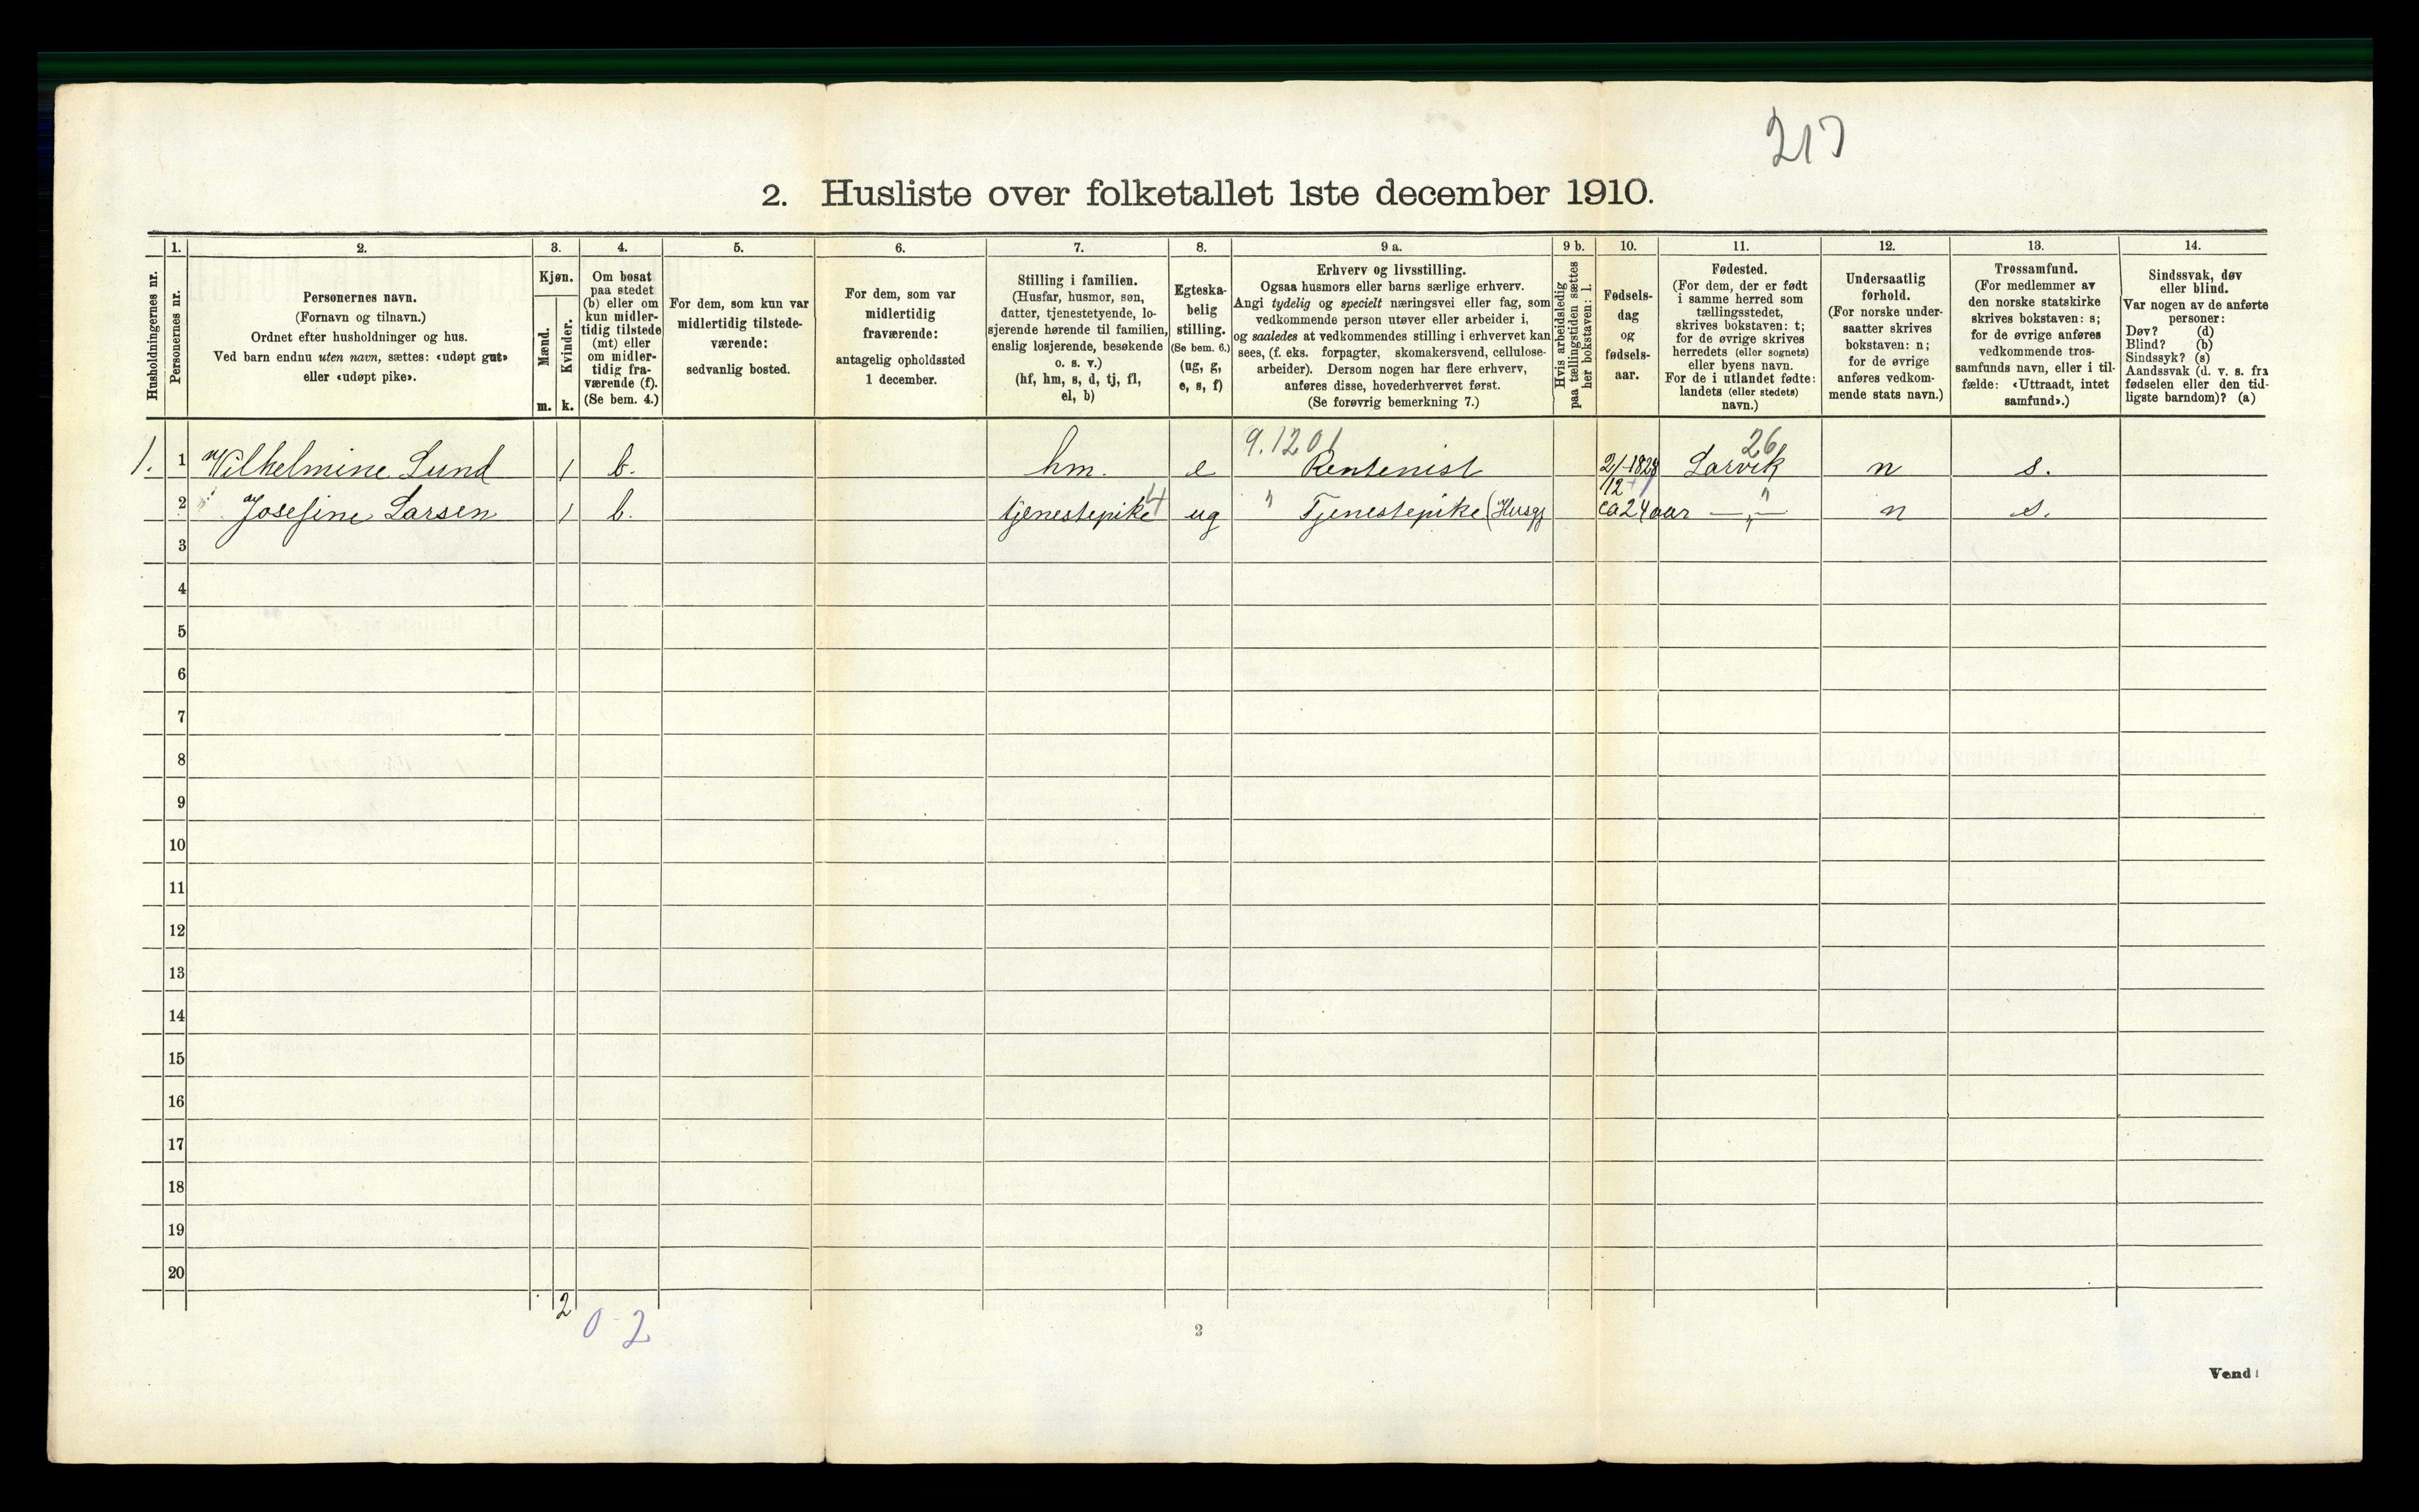 217
2. Husliste over folketallet 1ste december 1910.
1. 2. 3. 4. 5. 6. 7. 8. 9 a. 9 b. 10. 11. 12. 13. 14.
Husholdningernes nr.
Personernes nr.
Personernes navn.
(Fornavn og tilnavn.)
Ordnet efter husholdninger og hus.
Ved barn endnu uten navn, sættes: «udøpt gut»
eller «udøpt pike».
Kjøn.
Mænd.
Kvinder.
m. k.
Om bosat
paa stedet
(b) eller om
kun midler-
tidig tilstede
(mt) eller
om midler-
tidig fra-
værende (f).
(Se bem. 4.)
For dem, som kun var
midlertidig tilstede-
værende:
sedvanlig bosted.
For dem, som var
midlertidig
fraværende:
antagelig opholdssted
1 december.
Stilling i familien.
(Husfar, husmor, søn,
datter, tjenestetyende, lo-
sjerende hørende til familien,
enslig losjerende, besøkende
o. s. v.)
(hf, hm, s, d, tj, fl,
el, b)
Egteska-
belig
stilling.
(Se bem. 6.)
(ug, g,
e, s, f)
Erhverv og livsstilling.
Ogsaa husmors eller barns særlige erhverv.
Angi tydelig og specielt næringsvei eller fag, som
vedkommende person utøver eller arbeider i,
og saaledes at vedkommendes stilling i erhvervet kan
sees, (f. eks. forpagter, skomakersvend, cellulose-
arbeider). Dersom nogen har flere erhverv,
anføres disse, hovederhvervet først.
(Se forøvrig bemerkning 7.)
Hvis arbeidsledig
paa tællingstiden sættes
her bokstaven: l.
Fødsels-
dag
og
fødsels-
aar.
Fødested.
(For dem, der er født
i samme herred som
tællingsstedet,
skrives bokstaven: t;
for de øvrige skrives
herredets (eller sognets)
eller byens navn.
For de i utlandet fødte:
landets (eller stedets)
navn.)
Undersaatlig
forhold.
(For norske under-
saatter skrives
bokstaven: n;
for de øvrige
anføres vedkom-
mende stats navn.)
Trossamfund.
(For medlemmer av
den norske statskirke
skrives bokstaven: s;
for de øvrige anføres
vedkommende tros-
samfunds navn, eller i til-
fælde: «Uttraadt, intet
samfund».)
Sindssvak, døv
eller blind.
Var nogen av de anførte
personer:
Døv? (d)
Blind? (b)
Sindssyk? (s)
Aandssvak (d. v. s. fra
fødselen eller den tid-
ligste barndom)? (a)
9.1201 26
1. 1 Wilhelmine Lund 1 b. hm. e Rentenist 2/12 1828 Larvik n s.
2 Josefine Larsen 1 b. tjenestepike 4 ug " Tjenestepike (Husgj ca 24 aar —„— n s.
3
4
5
6
7
8
9
10
11
12
13
14
15
16
17
18
19
20
2
0 - 2
2
Vend!